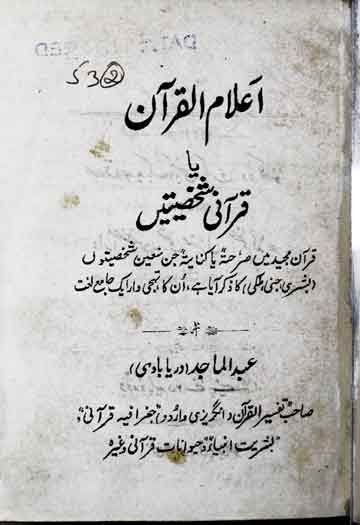 ۵۳۲
اَعلام القرآن
یا
قرآنی شخصیتیں
قرآن مجید میں صرحۃً یا کنایۃً جن متعین شخصیتوں
(بشری، جنی، ملکی) کا ذکر آیا ہے، اُن کا تہجی وار ایک جامع لغت
عبدالماجد (دریابادی)
صاحب تفسیر القرآن (انگریزی و اردو) "جغرافیہ قرآنی"،
"بشریت انبیاء" و "حیوانات قرآنی" وغیرہ